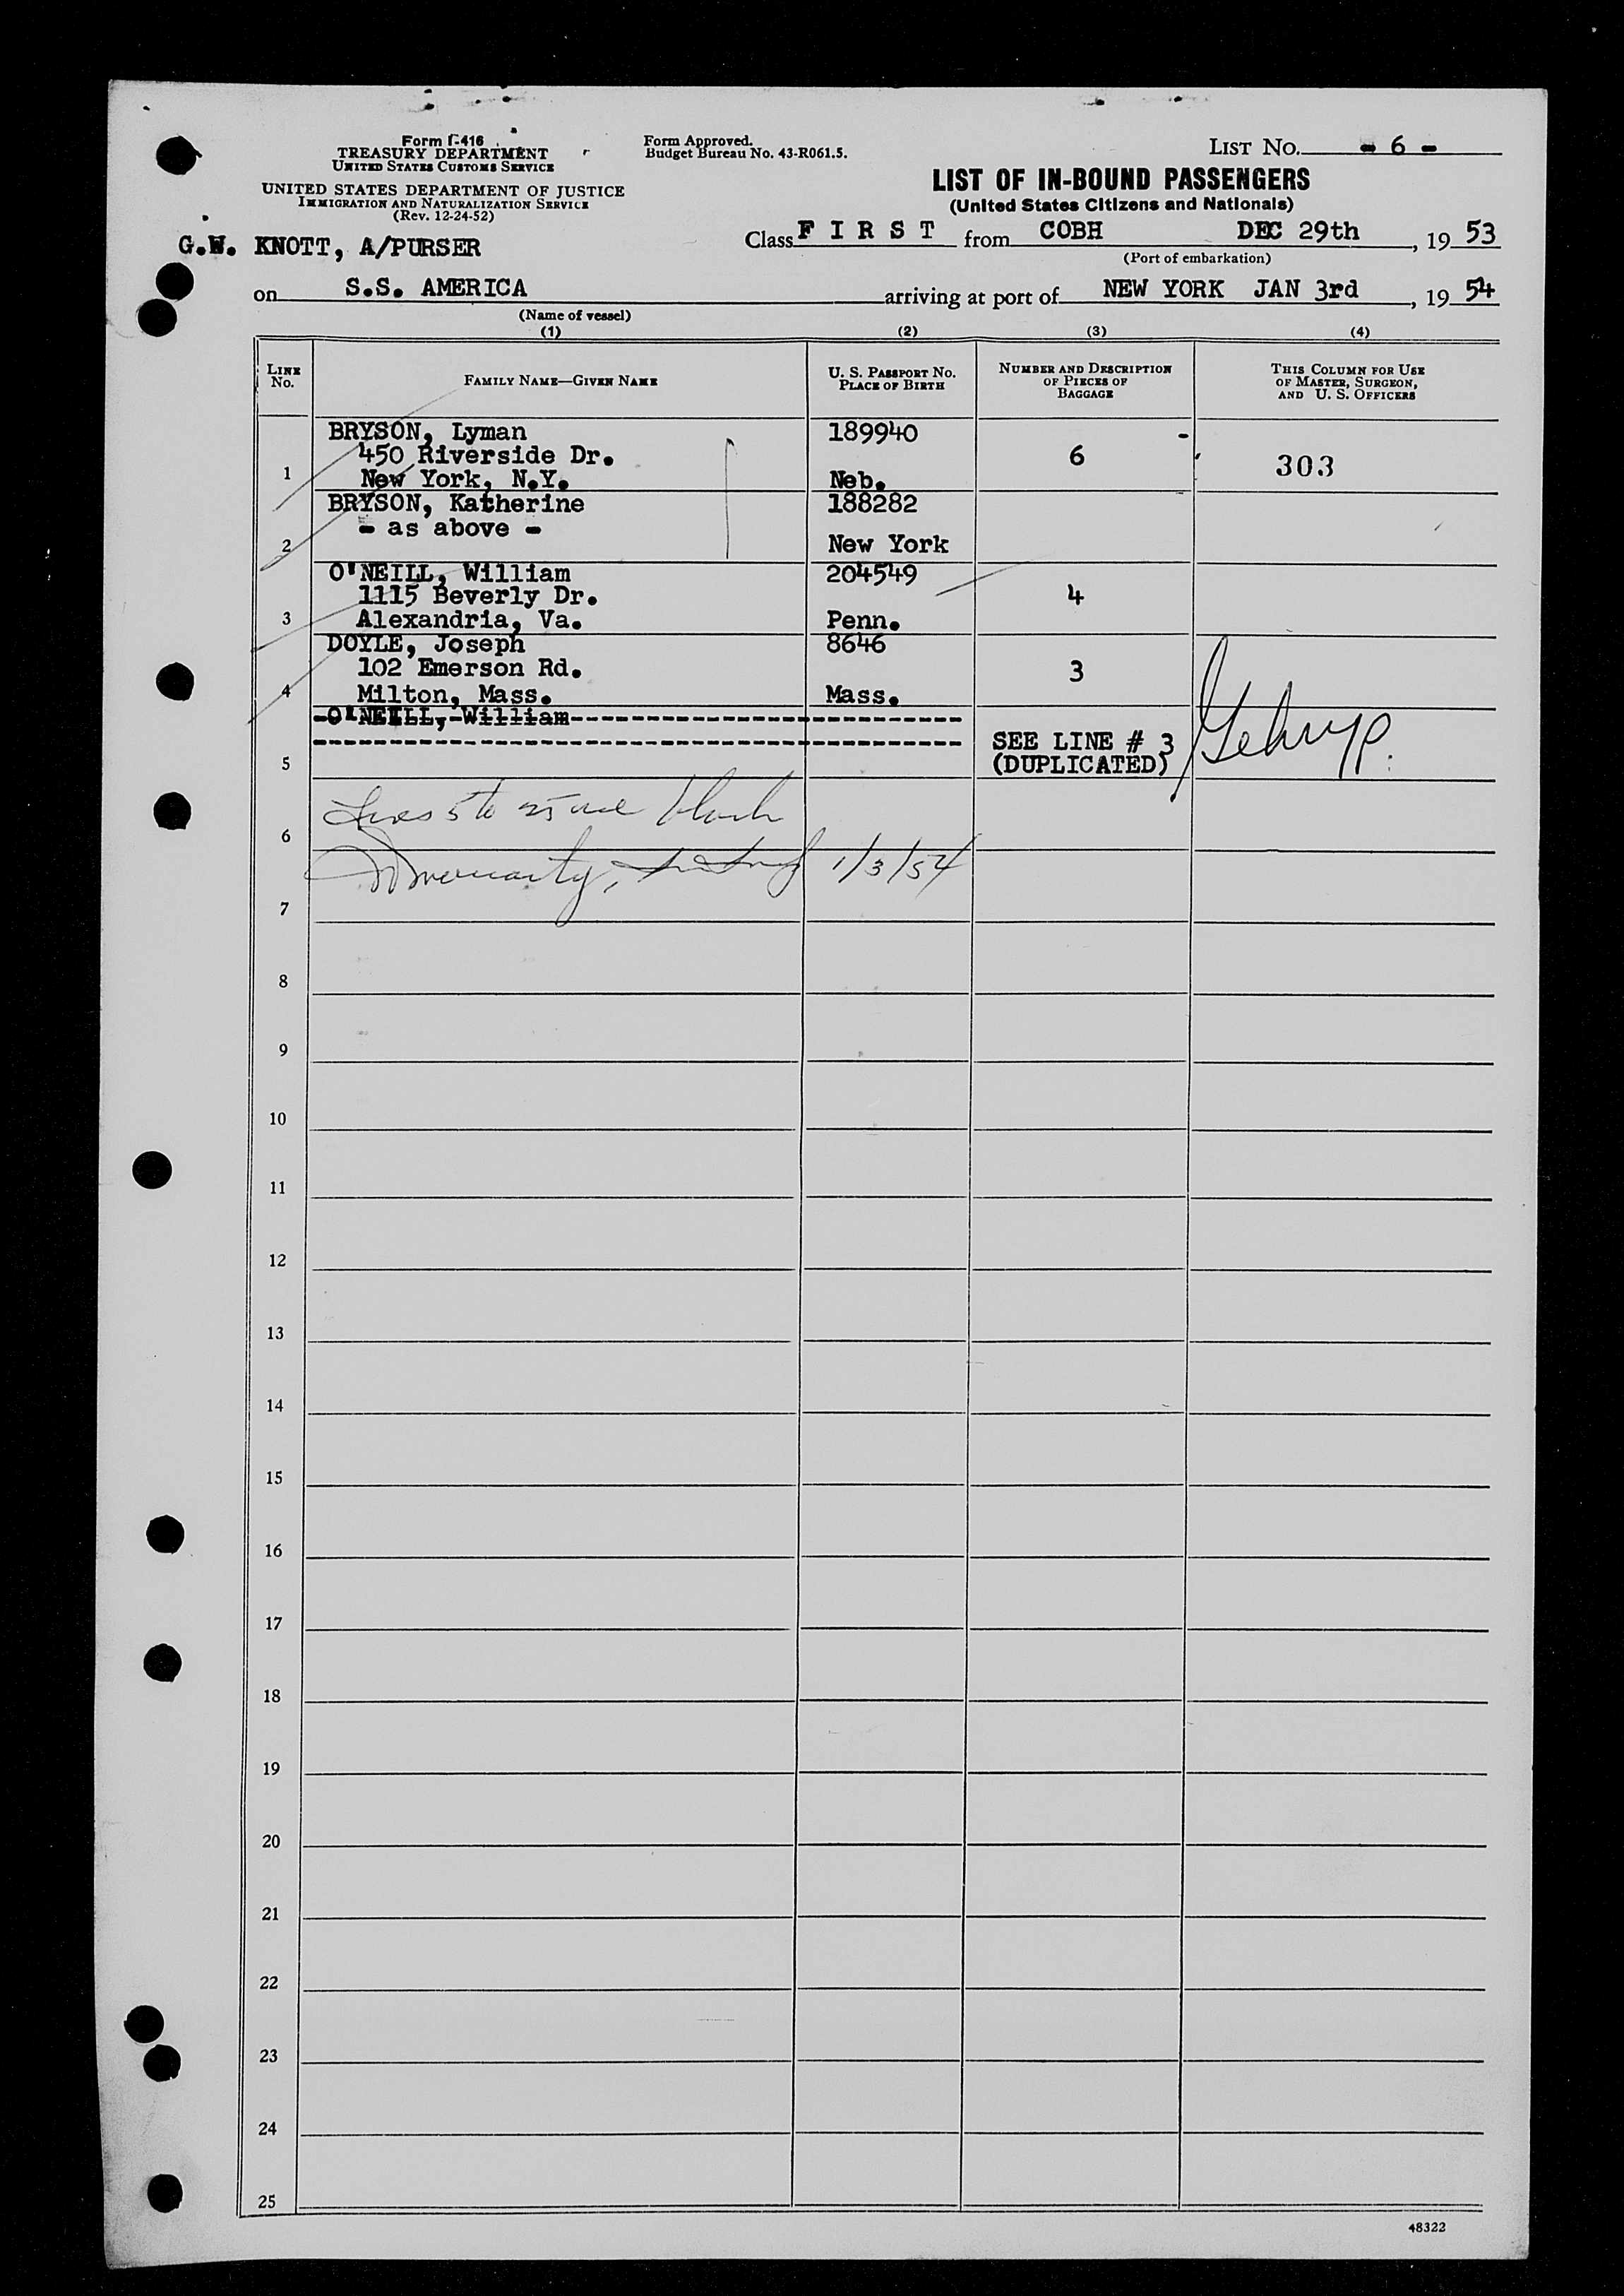 Form I-416
TREASURY DEPARTMENT
UNITED STATES CUSTOMS SERVICE
UNITED STATES DEPARTMENT OF JUSTICE
IMMIGRATION AND NATURALIZATION SERVICE
(Rev. 12-24-52)
Form Approved.
Budget Bureau No. 43-R061.5.
LIST No. - 6 -
LIST OF IN-BOUND PASSENGERS
(United States Citizens and Nationals)
G.W. KNOTT, A/PURSER
Class F I R S T from COBH DEC 29th, 19 53
(Port of embarkation)
on S.S. AMERICA arriving at port of NEW YORK JAN 3rd, 19 54
(Name of vessel)
(1) (2) (3) (4)
LINE No.
FAMILY NAME—GIVEN NAME
U. S. PASSPORT NO.
PLACE OF BIRTH
NUMBER AND DESCRIPTION
OF PIECES OF
BAGGAGE
THIS COLUMN FOR USE
OF MASTER, SURGEON,
AND U. S. OFFICERS
BRYSON, Lyman 189940
450 Riverside Dr. 6
1 New York, N.Y. Neb. 303
BRYSON, Katherine 188282
- as above -
2 New York
O'NEILL, William 204549
1115 Beverly Dr. 4
3 Alexandria, Va. Penn.
DOYLE, Joseph 8646
102 Emerson Rd. 3
4 Milton, Mass. Mass.
O'NEILL, William
SEE LINE # 3
5 (DUPLICATED)
Lines 5 to 25 are blank
6
1/3/54
7
8
9
10
11
12
13
14
15
16
17
18
19
20
21
22
23
24
25
48322